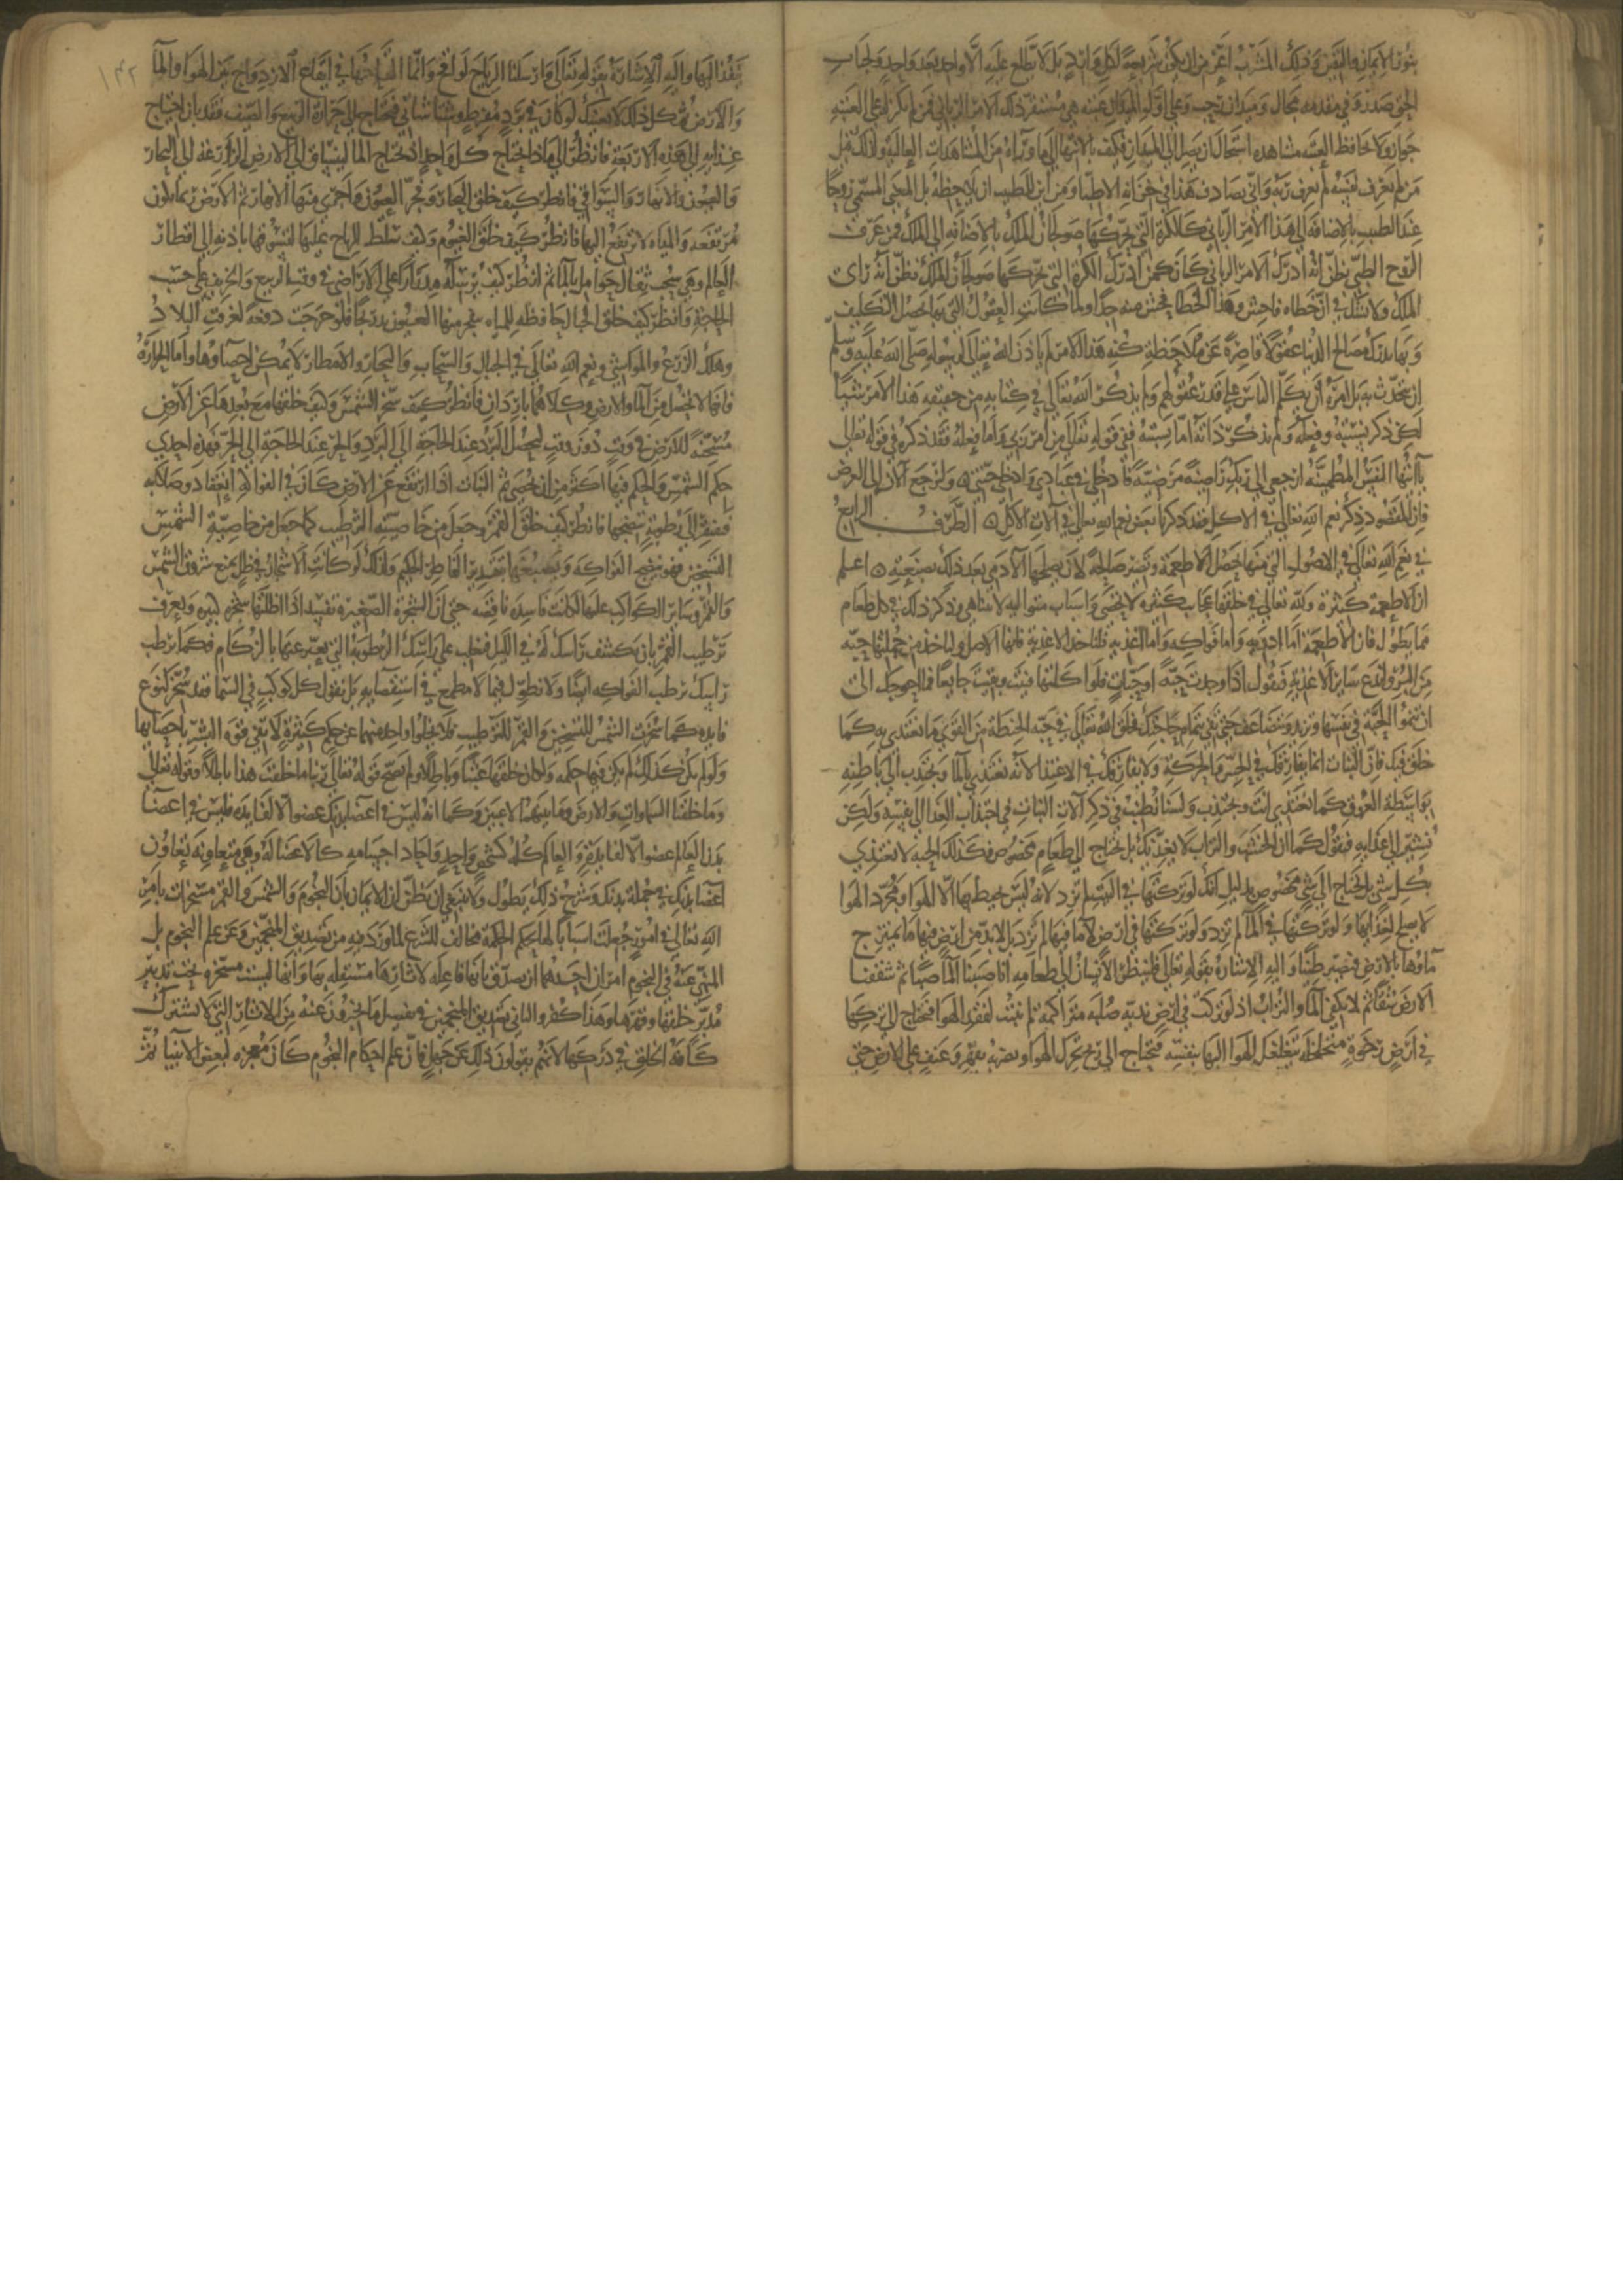 بنور الايمان واليقين وذلك المشرب اعز من ان يكون شريعة لكل وارد بل لا يطلع عليه الا واحد بعد واحد ولجناب
الحق صدر وفي مقدمه مجال وميدان رحب وعلى اول الميدان عتبه هي مستقر ذلك الامر الرباني فمن لم يكن له على العتبه
جواز ولا لحافظ العتبه مشاهده استحال ان يصل الى الميدان فكيف بالانتها الى ما وراه من المشاهدات العاليه ولذلك قيل
من لم يعرف نفسه لم يعرف ربه واني يصادف هذا في خزانه الاطبا ومن اين للطبيب ان يلاحظه بل المعنى المسمى روحا
عند الطبيب بالاضافه الى هذا الامر الرباني كالكرة التي يحركها صولجان الملك بالاضافه الى الملك فمن عرف
الروح الطبي فظن انه ادرك الامر الرباني كان كمن ادرك الكرة التي يحركها صولجان الملك فظن انه راى
الملك ولا يشك في ان خطاه فاحش وهذا الخطا افحش منه جدا ولما كانت العقول التي بها يحصل التكليف
وبها يدرك مصالح الدنيا عقولا قاصرة عن ملاحظة كنه هذا الامر لم ياذن الله تعالى لرسوله صلى الله عليه وسلم
ان يتحدث به بل امره ان يكلم الناس على قدر عقولهم ولم يذكر الله تعالى في كتابه من حقيقه هذا الامر شيئا
لكن ذكر نسبته وفعله ولم يذكر ذاته اما نسبته ففي قوله تعالى من امر ربي واما فعله فقد ذكره في قوله تعالى
يا ايتها النفس المطمئنه ارجعي الى ربك راضية مرضية فادخلي في عبادي وادخلي جنتي ولنرجع الان الى الغرض
فان المقصود ذكر نعم الله تعالى في الاكل فقد ذكرنا بعض نعم الله تعالى في الات الاكل الطرف الرابع
في نعم الله تعالى في الاصول التي منها تحصل الاطعمة وتصير صالحة لان يصلحها الادمي بعد ذلك بصنعته اعلم
ان الاطعمة كثيرة ولله تعالى في خلقها عجايب كثيرة لا تحصى واسباب متواليه لا تتناهى وذكر ذلك في كل طعام
مما يطول فان الاطعمة اما ادويه واما فواكه واما اغذيه فلناخذ الاغذية فانها الاصل ولناخذ من جملتها حبه
من البر ولندع ساير الاغذية فنقول اذا وجدت حبة او حبات فلو اكلتها فنيت وبقيت جايعا فما احوجك الى
ان تنمو الحبة في نفسها وتزيد وتتضاعف حتى تفي بتمام حاجتك فخلق الله تعالى في حبه الحنطة من القوى ما تغتدي به كما
خلق فيك فان النبات انما يفارقك في الحس والحركة ولا يفارقك في الاغتذا لانه يغتذي بالما ويجتذب الى باطنه
بواسطة العروق كما تغتذي انت وتجتذب ولسنا نطنب في ذكر الات النبات في اجتذاب الغدا الى نفسه ولكن
نشير الى غذايه فنقول كما ان الخشب والتراب لا يغذيك بل تحتاج الى طعام مخصوص فكذلك الحبه لا تغتذي
بكل شي بل تحتاج الى شي مخصوص بدليل انك لو تركتها في البيت لم تزد لانه ليس يحيط بها الا الهوا ومجرد الهوا
لا يصلح لغذايها ولو تركتها في الما لم تزد ولو تركتها في ارض لا ما فيها لم تزد بل لا بد من ارض فيها ما يمتزج
ماوها بالارض فيصير طينا واليه الاشاره بقوله تعالى فلينظر الانسان الى طعامه انا صببنا الما صبا ثم شققنا
الارض شقا ثم لا يكفي الما والتراب اذ لو تركت في ارض نديه صلبه متراكمه لم تنبت لفقد الهوا فتحتاج الى تركها
في ارض رخوة متخلخلة يتغلغل الهوا اليها ثم الهوا لا يتحرك اليها بنفسه فتحتاج الى ريح تحرك الهوا وتضربه بقهر وعنف على الارض حتى
ينفذ اليها واليه الاشارة بقوله تعالى وارسلنا الرياح لواقح وانما القاحها في ايقاع الازدواج بين الهوا والما
والارض ثم كل ذلك لا يغنيك لو كان في برد مفرط وشتا شاتي فتحتاج الى حرارة الربيع والصيف فقد بان احتياج
غذايه الى هذه الاربعة فانظر الى ماذا يحتاج كل واحد اذ يحتاج الما لينساق الى الارض الزراعة الى البحار
والعيون والانهار والسواقي فانظر كيف خلق البحار وفجر العيون واجرى منها الانهار ثم الارض ربما تكون
مرتفعه والمياه لا ترتفع اليها فانظر كيف خلق الغيوم وكيف سلط الرياح عليها لتسوقها باذنه الى اقطار
العالم وهي سحب ثقال حوامل بالما ثم انظر كيف يرسله مدرارا على الاراضي في وقت الربيع والخريف على حسب
الحاجة وانظر كيف خلق الجبال حافظه للمياه تنفجر منها العيون تدريجا فلو خرجت دفعة لغرقت البلاد
وهلك الزرع والمواشي ونعم الله تعالى في الجبال والسحاب والبحار والامطار لا يمكن احصاوها واما الحرارة
فانها لا تحصل من الما والارض وكلاهما باردان فانظر كيف سخر الشمس وكيف خلقها مع بعدها عن الارض
مسخنة للارض في وقت دون وقت ليحصل البرد عند الحاجة الى البرد والحر عند الحاجة الى الحر فهذه احدى
حكم الشمس والحكم فيها اكثر من ان تحصى ثم النبات اذا ارتفع عن الارض كان في الفواكه انعقاد وصلابه
فتفتقر الى رطوبة تنضجها فانظر كيف خلق القمر وجعل من خاصيته الترطيب كما جعل من خاصية الشمس
التسخين فهو ينضج الفواكه ويصبغها بتقدير الفاطر الحكيم ولذلك لو كانت الاشجار في ظل يمنع شروق الشمس
والقمر وساير الكواكب عليها لكانت فاسدة ناقصه حتى ان الشجرة الصغيرة تفسد اذا اظلتها شجره كبيره وتعرف
ترطيب القمر بان تكشف راسك له في الليل فتغلب على راسك الرطوبة التي يعبر عنها بالزكام فكما يرطب
راسك يرطب الفواكه ايضا ولا نطول فيما لا مطمع في استقصايه بل نقول كل كوكب في السما فقد سخر لنوع
فايده كما سخرت الشمس للتسخين والقمر للترطيب فلا يخلوا واحد منهما عن حكم كثيرة لا تفي قوه البشر باحصايها
ولو لم يكن كذلك لم يكن فيها حكمه ولكان خلقها عبثا وباطلا ولم يصح قوله تعالى ربنا ما خلقت هذا باطلا وقوله تعالى
وما خلقنا السماوات والارض وما بينهما لاعبين وكما انه ليس في اعضا بدنك عضو الا لفايده فليس في اعضا
بدن العالم عضو الا لفايدة والعالم كله كشخص واحد واحاد اجسامه كالاعضا له وهي متعاونة تعاون
اعضا بدنك في جملة بدنك وشرح ذلك يطول ولا ينبغي ان تظن ان الايمان بان النجوم والشمس والقمر مسخرات بامر
الله تعالى في امور جعلت اسبابا لها بحكم الحكمة مخالف للشرع لما ورد فيه من تصديق المنجمين وعن علم النجوم بل
المنهي عنه في النجوم امران احدهما ان يصدق بانها فاعله لاثارها مستقله بها وانها ليست مسخره تحت تدبير
مدبر خلقها وقهرها وهذا كفر والثاني تصديق المنجمين في تفصيل ما يخبرون عنه من الاثار التي لا يشترك
كافة الخلق في دركها لانهم يقولون ذلك عن جهل فان علم احكام النجوم كان معجزه لبعض الانبيا ثم